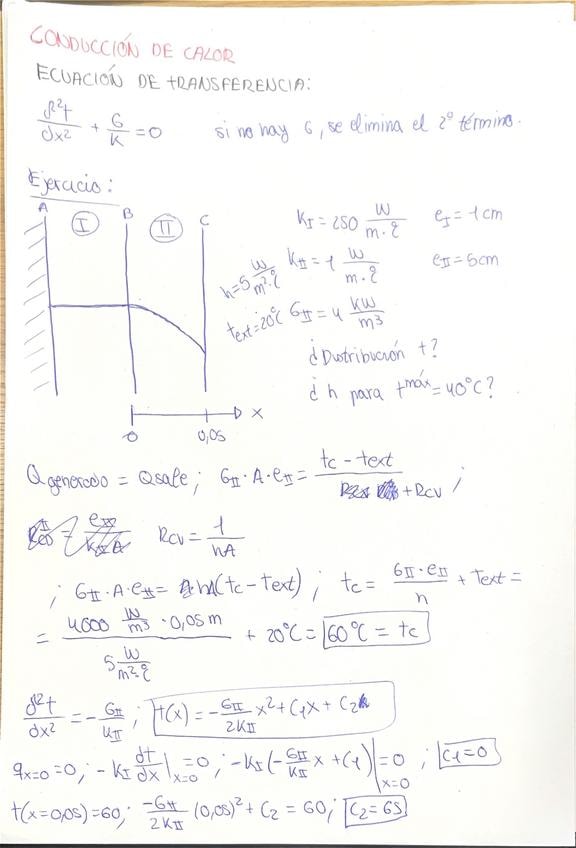 CONDUCCIÓN DE CALOR
ECUACIÓN DE tRANSFERENCIA:
d²t/dx² + G/K = 0   si no hay G, se elimina el 2º término.
Ejercicio:
A   B   C
I   II   K_I = 250 W/m·ºC   e_I = 1 cm
h = 5 W/m²·ºC   K_II = 1 W/m·ºC   e_II = 5 cm
t_ext = 20ºC   G_II = 4 KW/m³
¿Distribución t?
¿h para t^máx = 40ºC?
0   0,05   x
Q generado = Q sale; G_II · A · e_II = (tc - text)/( + Rcv) ;
Rcv = 1/hA
; G_II · A · e_II = hA(tc - text) ; tc = (G_II · e_II)/h + text =
= (4000 W/m³ · 0,05 m)/(5 W/m²·ºC) + 20ºC = 60ºC = tc
d²t/dx² = - G_II/K_II ; t(x) = - G_II/2K_II x² + C1x + C2
q_x=0 = 0; - K_I dt/dx|_x=0 = 0 ; - K_I (- G_II/K_II x + C1)|_x=0 = 0 ; C1 = 0
t(x = 0,05) = 60; -G_II/2K_II (0,05)² + C2 = 60; C2 = 65